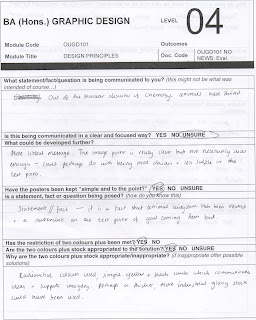 BA (Hons.) GRAPHIC DESIGN
LEVEL
04
Module Code
OUGD101
Outcomes
Module Title
DESIGN PRINCIPLES
Doc. Code
OUGD101 NO
NEWS_Eval
What statement/fact/question is being communicated to you? (this might not be what was
intended of course...)
Out of the nuclear disaster of Chernobyl, animals have
Is this being communicated in a clear and focused way? YES NO UNSURE
What could be developed further?
More literal message. The image pair is really clear but not necessarily clear
enough - could perhaps do with being more obvious + less subtle in the
text pair.
Have the posters been kept "simple and to the point?" YES NO UNSURE
Is a statement, fact or question being posed? (how do you know this)
Statement / fact - it is a fact that animal kingdom has been
+ a statement on the text poster of good coming from bad.
Has the restriction of two colours plus been met? YES NO
Are the two colours plus stock appropriated to the solution? YES NO UNSURE
Why are the two colours plus stock appropriate/inappropriate? (if inappropriate offer possible
solutions)
Radioactive colours used simple yellow + black combo which communicates
ideas + supports imagery. Perhaps a thicker, more industrial glossy stock
could have been used.